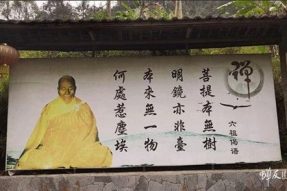 禪
六祖偈语
菩提本無樹
明鏡亦非臺
本來無一物
何處惹塵埃